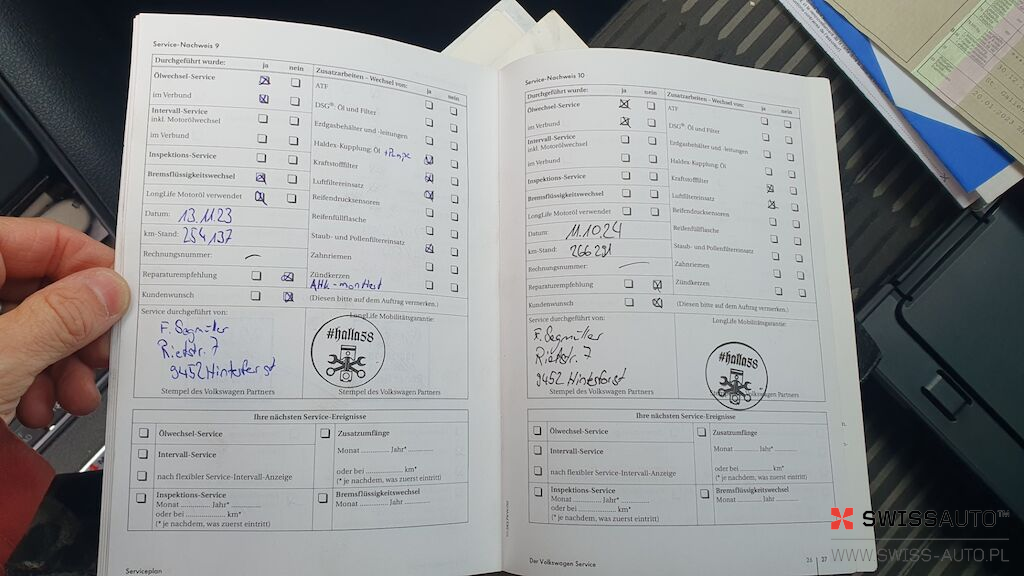 Service-Nachweis 9
Durchgeführt wurde: ja nein
Ölwechsel-Service
im Verbund
Intervall-Service
inkl. Motorölwechsel
im Verbund
Inspektions-Service
Bremsflüssigkeitswechsel
LongLife Motoröl verwendet
Datum: 13.11.23
km-Stand: 254 137
Rechnungsnummer:
Reparaturempfehlung
Kundenwunsch
Zusatzarbeiten - Wechsel von: ja nein
ATF
DSG®: Öl und Filter
Erdgasbehälter und -leitungen
Haldex-Kupplung: Öl + Pumpe
Kraftstofffilter
Luftfiltereinsatz
Reifendrucksensoren
Reifenfüllflasche
Staub- und Pollenfiltereinsatz
Zahnriemen
Zündkerzen
AHK - montiert
(Diesen bitte auf dem Auftrag vermerken.)
Service durchgeführt von:
F. Segmüller
Rietstr. 7
9452 Hinterforst
LongLife Mobilitätsgarantie:
#halla58
Stempel des Volkswagen Partners
Stempel des Volkswagen Partners
Ihre nächsten Service-Ereignisse
Ölwechsel-Service
Intervall-Service
nach flexibler Service-Intervall-Anzeige
Inspektions-Service
Monat ............ Jahr*
oder bei ............ km*
(* je nachdem, was zuerst eintritt)
Zusatzumfänge
Monat ............ Jahr* ............
oder bei ............ km*
(* je nachdem, was zuerst eintritt)
Bremsflüssigkeitswechsel
Monat ............ Jahr ............
Serviceplan
Service-Nachweis 10
Durchgeführt wurde: ja nein
Ölwechsel-Service
im Verbund
Intervall-Service
inkl. Motorölwechsel
im Verbund
Inspektions-Service
Bremsflüssigkeitswechsel
LongLife Motoröl verwendet
Datum: 11.10 24
km-Stand: 266 291
Rechnungsnummer:
Reparaturempfehlung
Kundenwunsch
Zusatzarbeiten - Wechsel von: ja nein
ATF
DSG®: Öl und Filter
Erdgasbehälter und -leitungen
Haldex-Kupplung: Öl
Kraftstofffilter
Luftfiltereinsatz
Reifendrucksensoren
Reifenfüllflasche
Staub- und Pollenfiltereinsatz
Zahnriemen
Zündkerzen
(Diesen bitte auf dem Auftrag vermerken.)
Service durchgeführt von:
F. Segmüller
Rietstr. 7
9452 Hinterforst
LongLife Mobilitätsgarantie:
#halla58
Stempel des Volkswagen Partners
Stempel des Volkswagen Partners
Ihre nächsten Service-Ereignisse
Ölwechsel-Service
Intervall-Service
nach flexibler Service-Intervall-Anzeige
Inspektions-Service
Monat ............ Jahr*
oder bei ............ km*
(* je nachdem, was zuerst eintritt)
Zusatzumfänge
Monat ............ Jahr* ............
oder bei ............ km*
(* je nachdem, was zuerst eintritt)
Bremsflüssigkeitswechsel
Monat ............ Jahr ............
Der Volkswagen Service
26 27
SWISSAUTO™
WWW.SWISS-AUTO.PL